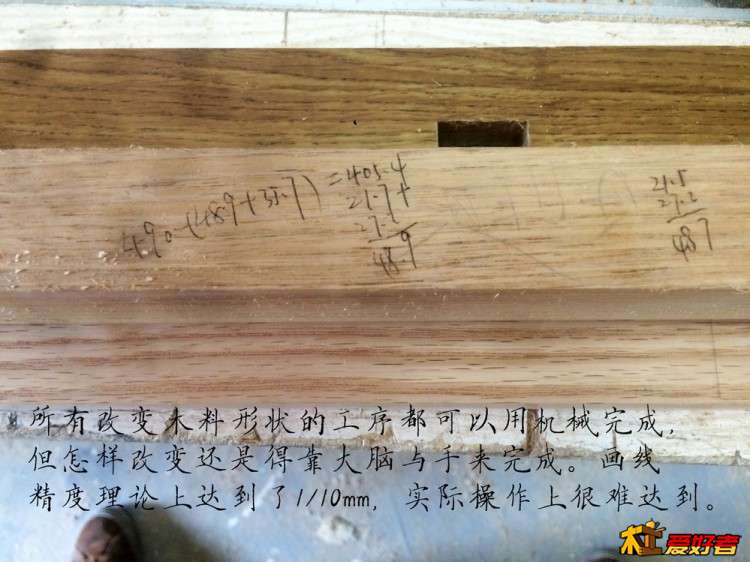 490-(48.9+35.7)=405.4
21.7+
27.2
48.9
21.5
27.2
48.7
所有改变木料形状的工序都可以用机械完成,
但怎样改变还是得靠大脑与手来完成。画线
精度理论上达到了1/10mm, 实际操作上很难达到。
木工爱好者